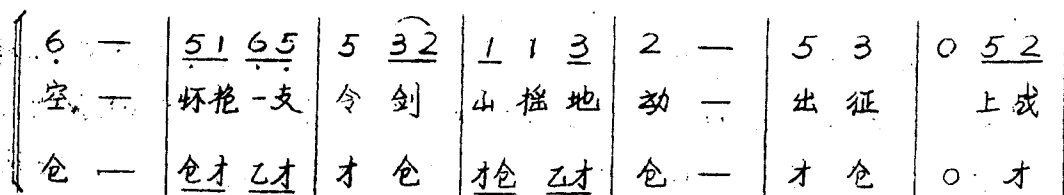 6 — | 51 65 | 5 32 | 1 1 3 | 2 — | 5 3 | 0 52
空。— 怀抱一支 令 剑 山 摇 地 动 — 出 征 上 战
仓 — | 仓才 乙才 | 才 仓 | 才仓 乙才 | 仓 — | 才 仓 | 0 才